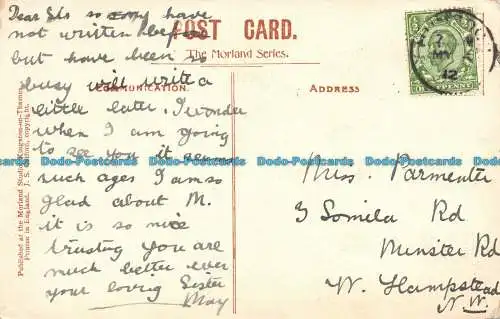 Dear Sis so sorry have
not written before
but have been so
busy will write a
little later. I wonder
when I am going
to see you it seems
such ages I am so
glad about M.
it is so nice
trusting you are
much better ever
your loving Sister
May
POST CARD.
The Morland Series.
COMMUNICATION.
ADDRESS
Miss. Parmenter
3 Somila Rd
Minster Rd
W. Hampstead
N.W.
7
MY
12
Published at the Morland Studio, Kingston-on-Thames.
Printed in England.
Dodo-Postcards Dodo-Postcards Dodo-Postcards Dodo-Postcards Dodo-Postcards